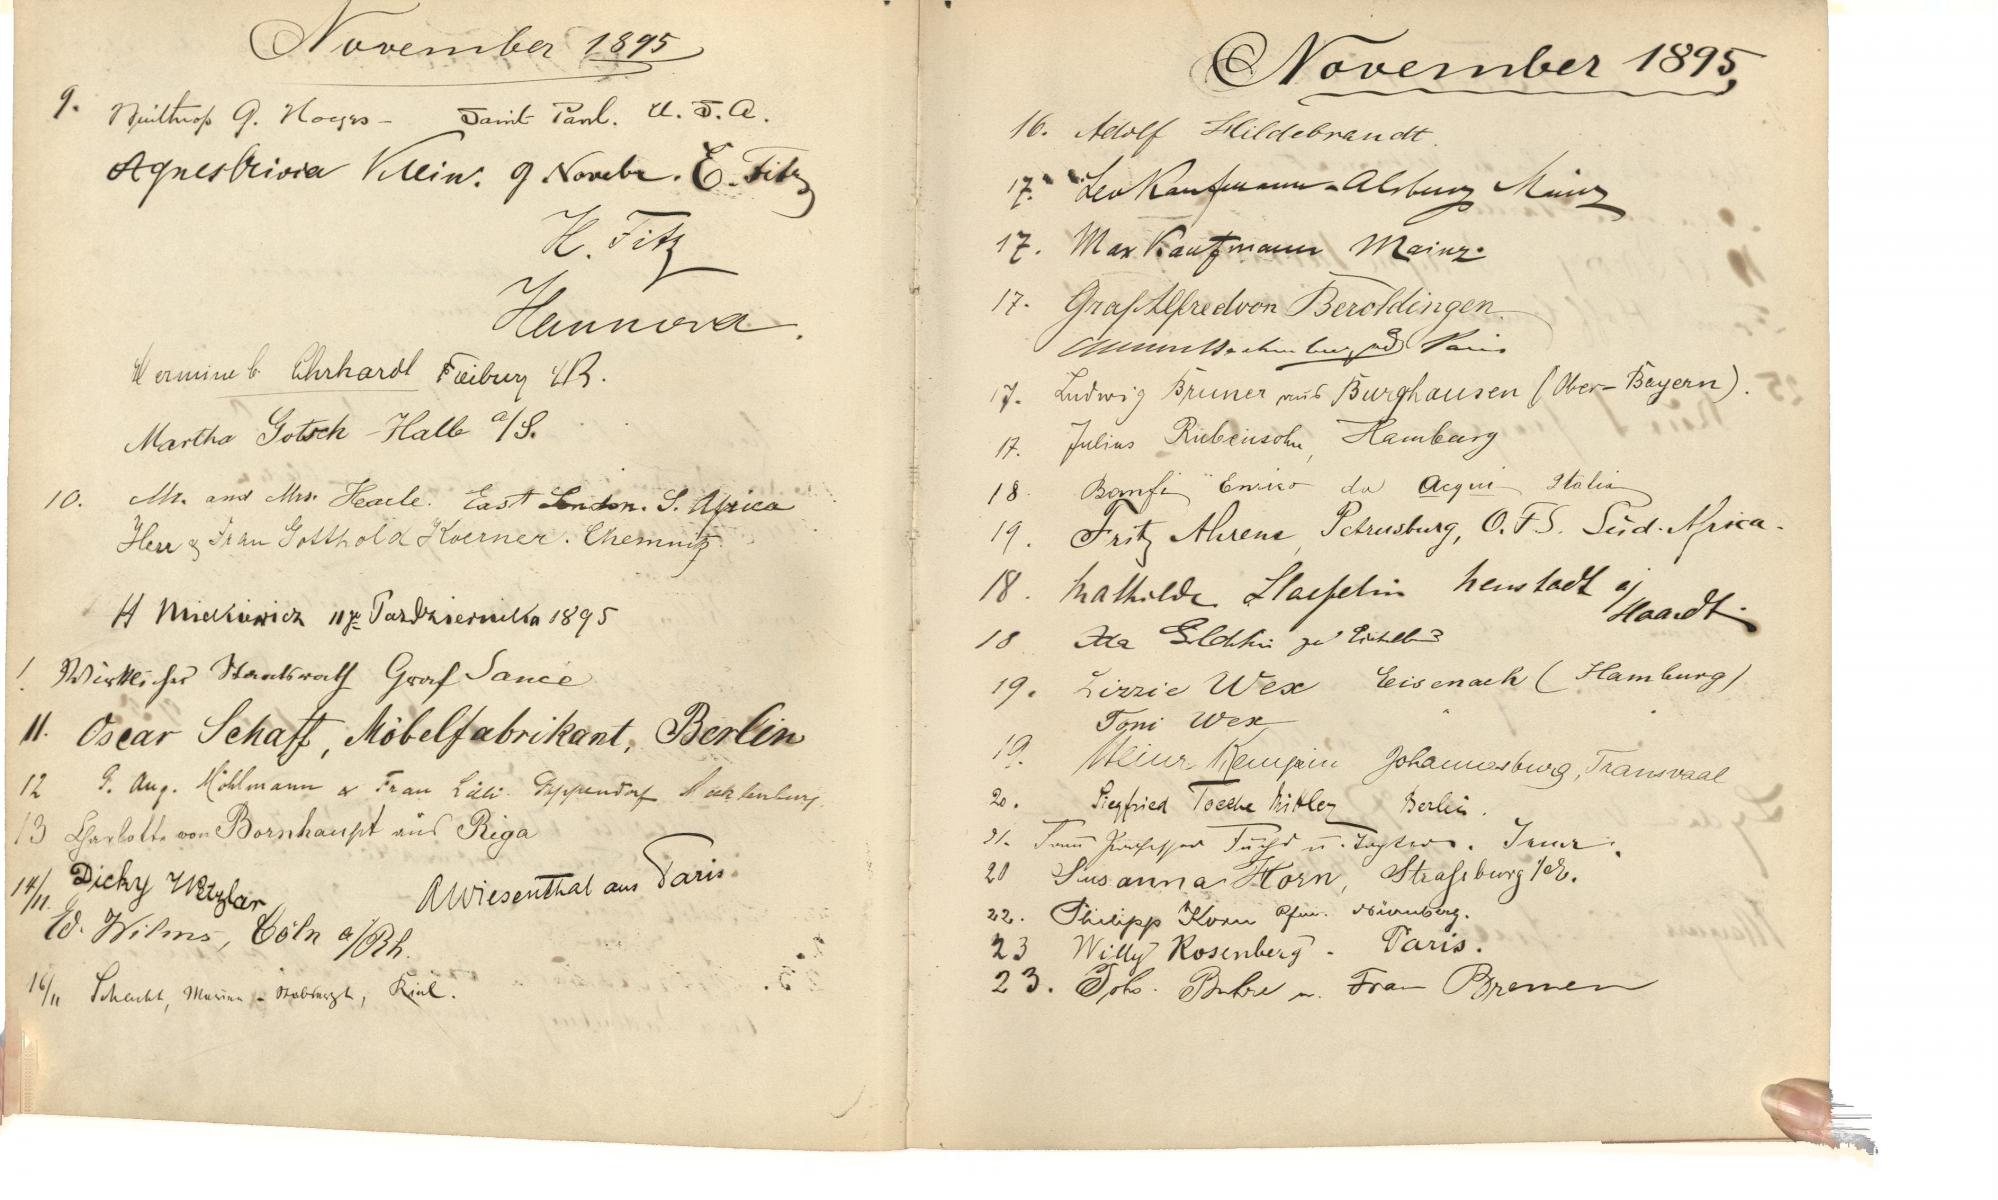 November 1895
9. Winthrop G. Noyes – Saint Paul. U. S. A.
Klein. 9 Novbr. E. Fitz
H. Fitz
Hannover.
Ehrhardt Freiburg i/B.
Martha Gotsch – Halle a/S.
10. Mr. and Mrs. East London. S. Africa
Herr & Frau Gotthold Koerner. Chemnitz.
A Mickiewicz 11go Pazdziernika 1895
Wirklicher Staatsrath Graf
11. Oscar Schaff, Möbelfabrikant, Berlin
12 Aug. Möhlmann & Frau Mecklenburg.
13 Charlotte von Bornhaupt aus Riga
14/11. Dicky Wetzlar
A Wiesenthal aus Paris.
Ed. Wilms, Cöln a/Rh.
16/11 Schacht, Marine-Stabsarzt, Kiel.
November 1895,
16. Adolf Hildebrandt.
17. Leo Kaufmann-Alsburg Mainz
17. Max Kaufmann Mainz.
17. Graf Alfred von Beroldingen.
Paris
17. Ludwig Bruner aus Burghausen (Ober-Bayern).
17. Julius Rubensohn, Hamburg
18 Enrico da Acqui Italia
19. Fritz Ahrens, Petrusburg, O.F.S. Süd-Africa.
18. Mathilde Neustadt a/
Haardt.
18 Ida
19. Lizzie Wex Eisenach (Hamburg)
Toni Wex " "
19. Heinr. Kempin Johannesburg, Transvaal
20. Siegfried Toeche Mittler Berlin.
21. Frau Professor Fuchs u. Tochter.
20 Susanna Horn, Straßburg i/E.
22. Philipp Korn Nürnberg.
23 Willy Rosenberg – Paris.
23. Joh. u. Frau Bremen